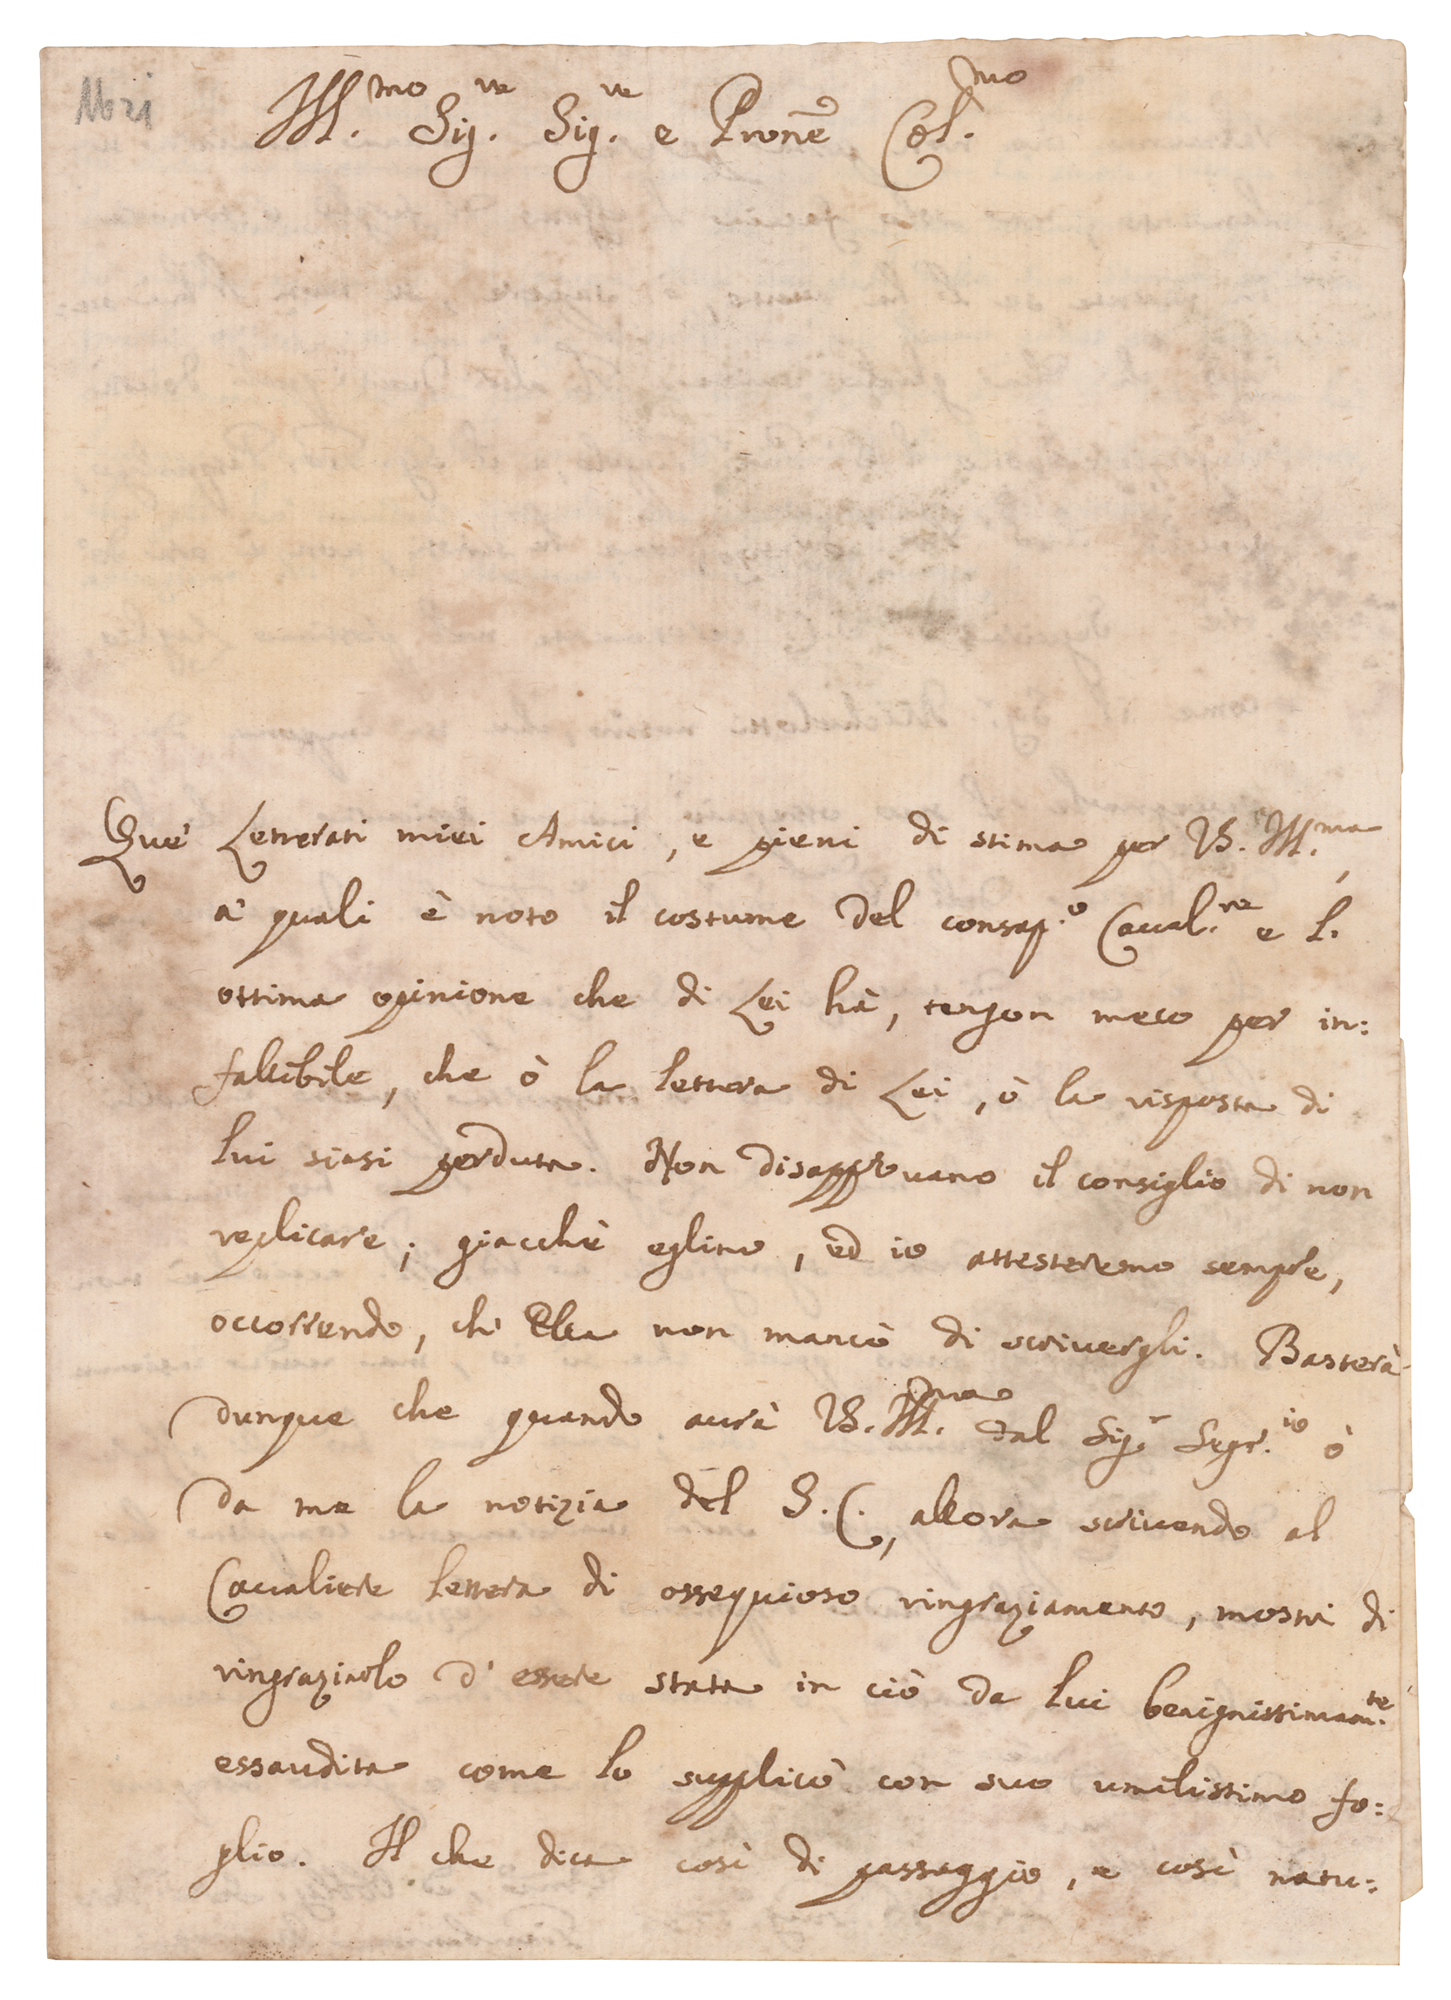 Ill.mo Sig.re Sig.re e Pronē Col.mo
Que' Letterati miei Amici, e pieni di stima per VS. Ill.ma,
a' quali è noto il costume del consap.o Caval.re e l'
ottima opinione che di Lei hà, tengon meco per in:
fallibile, che ò la lettera di Lei, ò la risposta di
lui siasi perduta. Non disapprovano il consiglio di non
replicare; giacchè eglino, ed io attesteremo sempre,
occorrendo, ch' Ella non mancò di scrivergli. Basterà
dunque che quando aurà VS. Ill.ma dal Sig.r Segr.io ò
da me la notizia del S. C., allora scrivendo al
Cavaliere lettera di ossequioso ringraziamento, mostri di
ringraziarlo d' essere stata in ciò da lui benignissimam.te
essaudita come lo supplicò con suo umilissimo fo:
glio. Il che dica così di passaggio, e così natu: